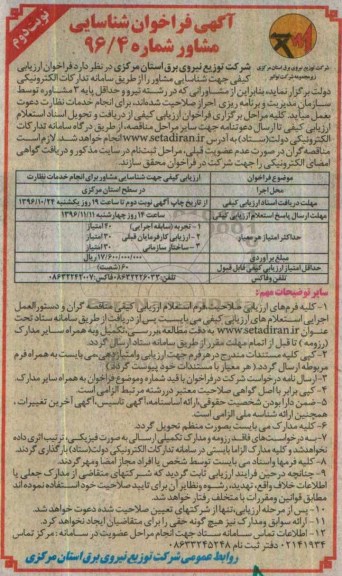 نوبت دوم
آگهی فراخوان شناسایی
مشاور شماره ۹۶/۴
شرکت توزیع نیروی برق استان مرکزی
شرکت توزیع نیروی برق استان مرکزی در نظر دارد فراخوان ارزیابی
کیفی جهت شناسایی مشاور را از طریق سامانه تدارکات الکترونیکی
دولت برگزار نماید، بنابراین از مشاورانی که در رشته نیرو و حداقل پایه ۳ مشاوره توسط
سازمان مدیریت و برنامه ریزی احراز صلاحیت شده‌اند، برای انجام خدمات نظارت دعوت
بعمل میآید. کلیه مراحل برگزاری فراخوان ارزیابی کیفی از دریافت و تحویل اسناد استعلام
ارزیابی کیفی تا ارسال دعوتنامه جهت سایر مراحل مناقصه، از طریق درگاه سامانه تدارکات
الکترونیکی دولت (ستاد) به آدرس www.setadiran.ir انجام خواهد شد. لازم است
مناقصه‌گران در صورت عدم عضویت قبلی، مراحل ثبت‌نام در سایت مذکور و دریافت گواهی
امضای الکترونیکی را جهت شرکت در فراخوان محقق سازند.
موضوع فراخوان ارزیابی کیفی جهت شناسایی مشاور برای انجام خدمات نظارت
محل اجرا در سطح استان مرکزی
مهلت دریافت اسناد ارزیابی کیفی از تاریخ چاپ آگهی نوبت دوم تا ساعت ۱۹ روز یکشنبه ۱۳۹۶/۱۰/۲۴
مهلت ارسال پاسخ استعلام ارزیابی کیفی ساعت ۱۴ روز چهارشنبه ۱۳۹۶/۱۱/۱۱
حداکثر امتیاز هر معیار ۱- تجربه (سابقه اجرایی) ۴۰ امتیاز
۲- ارزیابی کارفرمایان قبلی ۳۰ امتیاز
۳- ساختار سازمانی ۳۰ امتیاز
مبلغ برآوردی ۱۷/۶۰۰/۰۰۰/۰۰۰ ریال
حداقل امتیاز ارزیابی کیفی قابل قبول ۶۰ (شصت)
تلفن و فاکس تلفن: ۰۸۶۳۲۲۲۶۰۳۳ فاکس: ۰۸۶۳۲۲۴۲۰۰۷
سایر توضیحات مهم:
۱- کلیه فرم‌های ارزیابی صلاحیت، فرم استعلام ارزیابی کیفی مناقصه گران و دستورالعمل
اجرایی استعلام های ارزیابی کیفی می بایست پس از دریافت از طریق سامانه ستاد تحت
عنوان www.setadiran.ir به دقت مطالعه بررسی، تکمیل و به همراه سایر مدارک
(رزومه) تا قبل از اتمام مهلت مقرر از طریق سامانه ستاد ارسال گردد.
۲- کپی کلیه مستندات مندرج در هر فرم جهت ارزیابی و امتیازدهی می بایست به همراه فرم
مربوطه ارسال گردد. (هر معیار با مستندات خود پیوست گردد)
۳- ارسال نامه درخواست شرکت در فراخوان با قید شماره و موضوع فراخوان به همراه سایر مدارک.
۴- کپی برابر با اصل گواهی صلاحیت معتبر در رشته مرتبط الزامی است.
۵- ضمن دارا بودن شخصیت حقوقی، ارائه اساسنامه، آگهی تاسیس، آگهی آخرین تغییرات،
همچنین ارائه شناسه ملی الزامی است.
۶- کلیه مدارک می بایست بصورت منظم تحویل گردد.
۷- به درخواست‌های فاقد رزومه و مدارک تکمیلی ارسالی به صورت فیزیکی، ترتیب اثری داده
نخواهد شد و کلیه مدارک الزاما بایستی در سامانه تدارکات الکترونیکی دولت (ستاد) بارگذاری گردند.
۸- کلیه فرمها و اسناد می بایست توسط شخص یا افراد مجاز امضا و مهر گردند.
۹- چنانچه در حین فرایند ارزیابی ثابت گردید که شرکتهای متقاضی از مدارک جعلی یا
اطلاعات خلاف واقع، تهدید، رشوه و نظایر آن برای تایید صلاحیت خود استفاده نموده‌اند
مطابق قوانین و مقررات با متخلف رفتار خواهد شد.
۱۰- پس از مرحله ارزیابی، تنها از شرکتهای تعیین صلاحیت شده دعوت خواهد شد.
۱۱- ارائه سوابق و مدارک نیز هیچ گونه حقی را برای متقاضیان ایجاد نخواهد کرد.
۱۲- اطلاعات تماس سامانه ستاد جهت انجام مراحل عضویت در سامانه: مرکز تماس
۰۲۱۴۱۹۳۴ دفتر ثبت نام ۰۸۶۳۳۲۴۵۲۴۸
روابط عمومی شرکت توزیع نیروی برق استان مرکزی